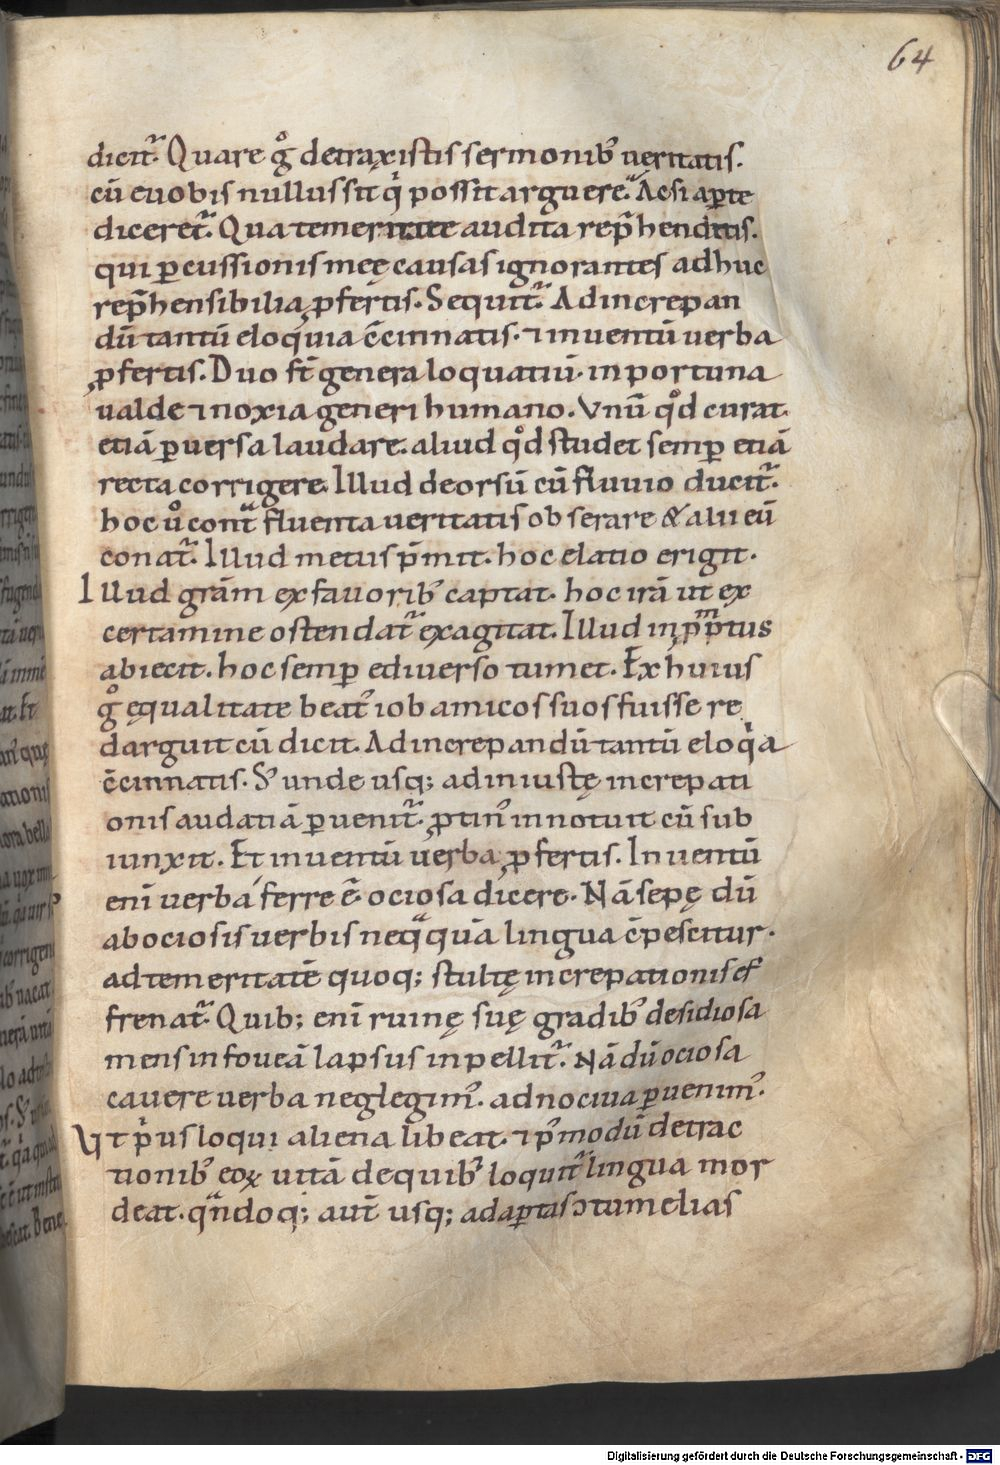 64
dicit᷑. Quare gͦ detraxistis sermonib᷒ ueritatis.
cū euobis nullus sit qͥ possit arguere. Acsi aꝑte
diceret᷑. Qua temeritate audita rep̄henditis.
qui ꝑcussionis meę causas ignorantes adhuc
rep̄hensibilia ꝓfertis. Sequit᷑. Adincrepan
dū tantū eloquia c̄cinnatis. ⁊ inuentū uerba
ꝓfertis. Duo st̄ genera loquatiū. inportuna
ualde ⁊ noxia generi humano. Vnū qͦd curat
etiā ꝑuersa laudare. aliud qͦd studet semꝑ etiā
recta corrigere. Illud deorsū cū fluuio ducit᷑.
hoc uͦ contᷓ fluenta ueritatis obserare & alii eū
conat᷑. Illud metus p̄mit. hoc elatio erigit.
Illud grām ex fauorib᷒ captat. hoc irā ut ex
certamine ostendat᷑ exagitat. Illud inp̄ptus
abiecit. hoc semꝑ ediuerso tumet. Ex huius
gͦ ęqualitate beat᷒ iob amicos suos fuisse re
darguit cū dicit. Adincrepandū tantū eloqͥa
c̄cinnatis. S᷒ unde usq; adiniustę increpati
onis audatiā ꝑuenit᷑. ꝓtin᷒ innotuit cū sub
iunxit. Et inuentū uerba ꝓfertis. In uentū
enī uerba ferre ē. ociosa dicere. Nā sepę dū
abociosis uerbis neqᷓquā lingua c̄pescitur.
adtemeritatē quoq; stultę increpationis ef
frenat᷑. Quib; enī ruinę suę gradib᷒ desidiosa
mens in foueā lapsus inpellit᷑. Nā dū ociosa
cauere uerba neglegim᷒. adnociua ꝑuenim᷒.
Vt pͥus loqui aliena libeat. ⁊ p᷒modū detrac
tionib᷒ eoꝝ uitā dequib᷒ loquit᷑ lingua mor
deat. qᷓndoq; aut̄ usq; adaꝑtas ↄtumelias
Digitalisierung gefördert durch die Deutsche Forschungsgemeinschaft - DFG